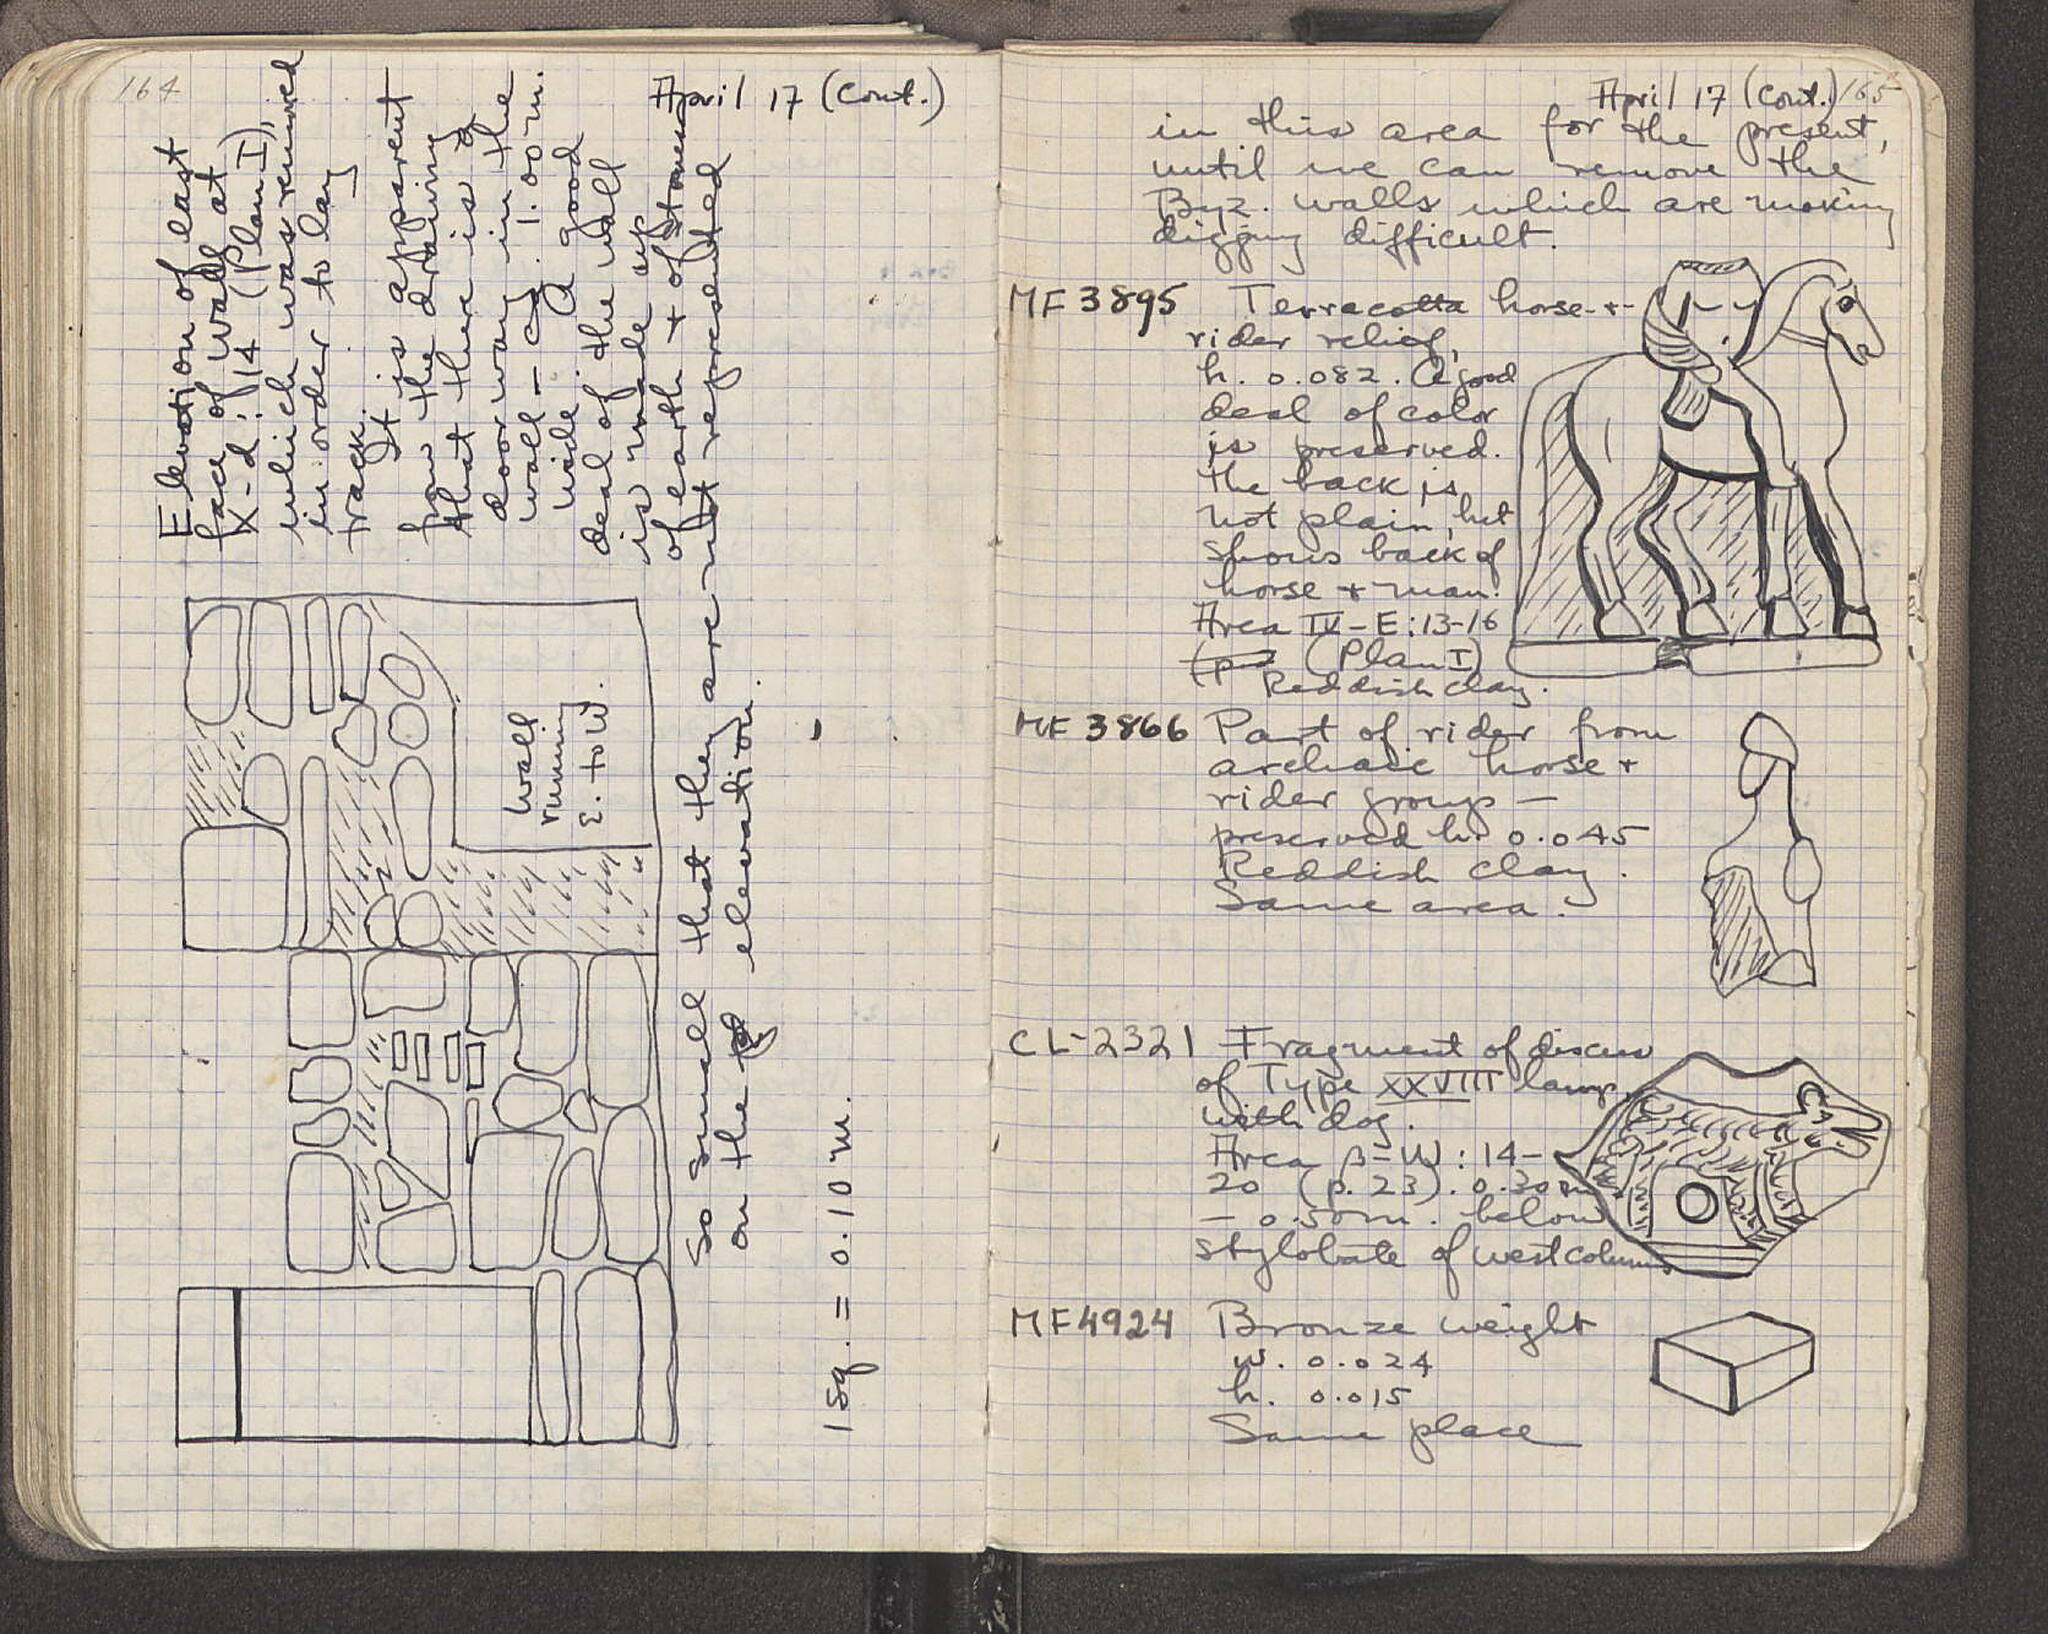 164
April 17 (Cont.)
Elevation of east
face of wall at
X-d: 14 (Plan I),
which was removed
in order to lay
track.
It is apparent
from the drawing
that there is a
doorway in the
wall – ca. 1.00 m.
wide. A good
deal of the wall
is made up
of earth + of stones
so small that they are not represented
on the elevation.
Wall
running
E. to W.
1 sq. = 0.10 m.
April 17 (Cont.) 165
in this area for the present,
until we can remove the
Byz. walls which are making
digging difficult.
MF 3895 Terracotta horse-+-
rider relief,
h. 0.082. A good
deal of color
is preserved.
The back is
not plain, but
shows back of
horse + man.
Area IV-E:13-16
(p (Plan I)
Reddish clay.
MF 3866 Part of rider from
archaic horse +
rider group –
preserved h. 0.045
Reddish clay.
Same area.
CL-2321 Fragment of discus
of Type XXVIII lamp
with dog.
Area β-W: 14-
20 (p. 23). 0.30m
– 0.50m. below
stylobate of west columns
MF4924 Bronze weight
w. 0.024
h. 0.015
Same place